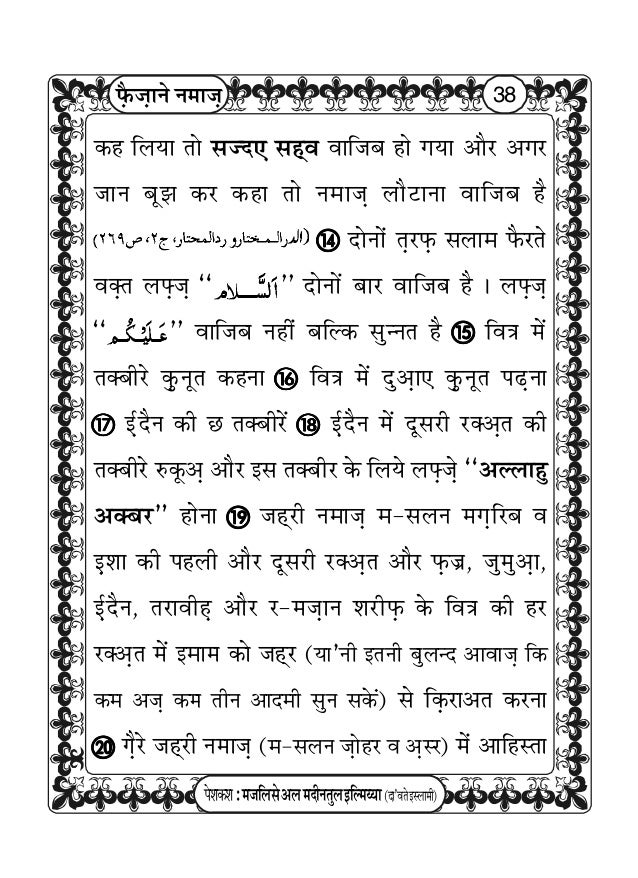 फ़ैज़ाने नमाज़
38
कह लिया तो सज्दए सह्व वाजिब हो गया और अगर
जान बूझ कर कहा तो नमाज़ लौटाना वाजिब है
(الدرالمختارو ردالمحتار، ج٢، ص٢٦٩) ⓮ दोनों त़रफ़ सलाम फैरते
वक़्त लफ्ज़ ‘‘اَلسَّلام’’ दोनों बार वाजिब है । लफ्ज़
‘‘عَلَيْكُم’’ वाजिब नहीं बल्कि सुन्नत है ⓯ वित्र में
तक्बीरे कु़नूत कहना ⓰ वित्र में दुआ़ए कु़नूत पढ़ना
⓱ ई़दैन की छ तक्बीरें ⓲ ई़दैन में दूसरी रक्अ़त की
तक्बीरे रुकूअ़ और इस तक्बीर के लिये लफ्ज़े ‘‘अल्लाहु
अक्बर’’ होना ⓳ जह्री नमाज़ म-सलन मग़रिब व
इ़शा की पहली और दूसरी रक्अ़त और फ़ज्र, जुमुआ़,
ई़दैन, तरावीह़ और र-मज़ान शरीफ़ के वित्र की हर
रक्अ़त में इमाम को जहर (या’नी इतनी बुलन्द आवाज़ कि
कम अज़ कम तीन आदमी सुन सकें) से क़िराअत करना
⓴ ग़ैरे जह्री नमाज़ (म-सलन ज़ोहर व अ़स्र) में आहिस्ता
पेशकश : मजलिसे अल मदीनतुल इल्मिय्या (दा’वते इस्लामी)